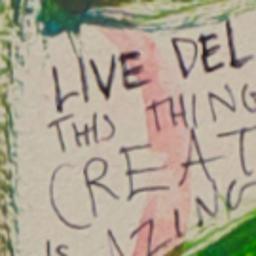 LIVE DEL
THIS THING
CREAT
IS AZING